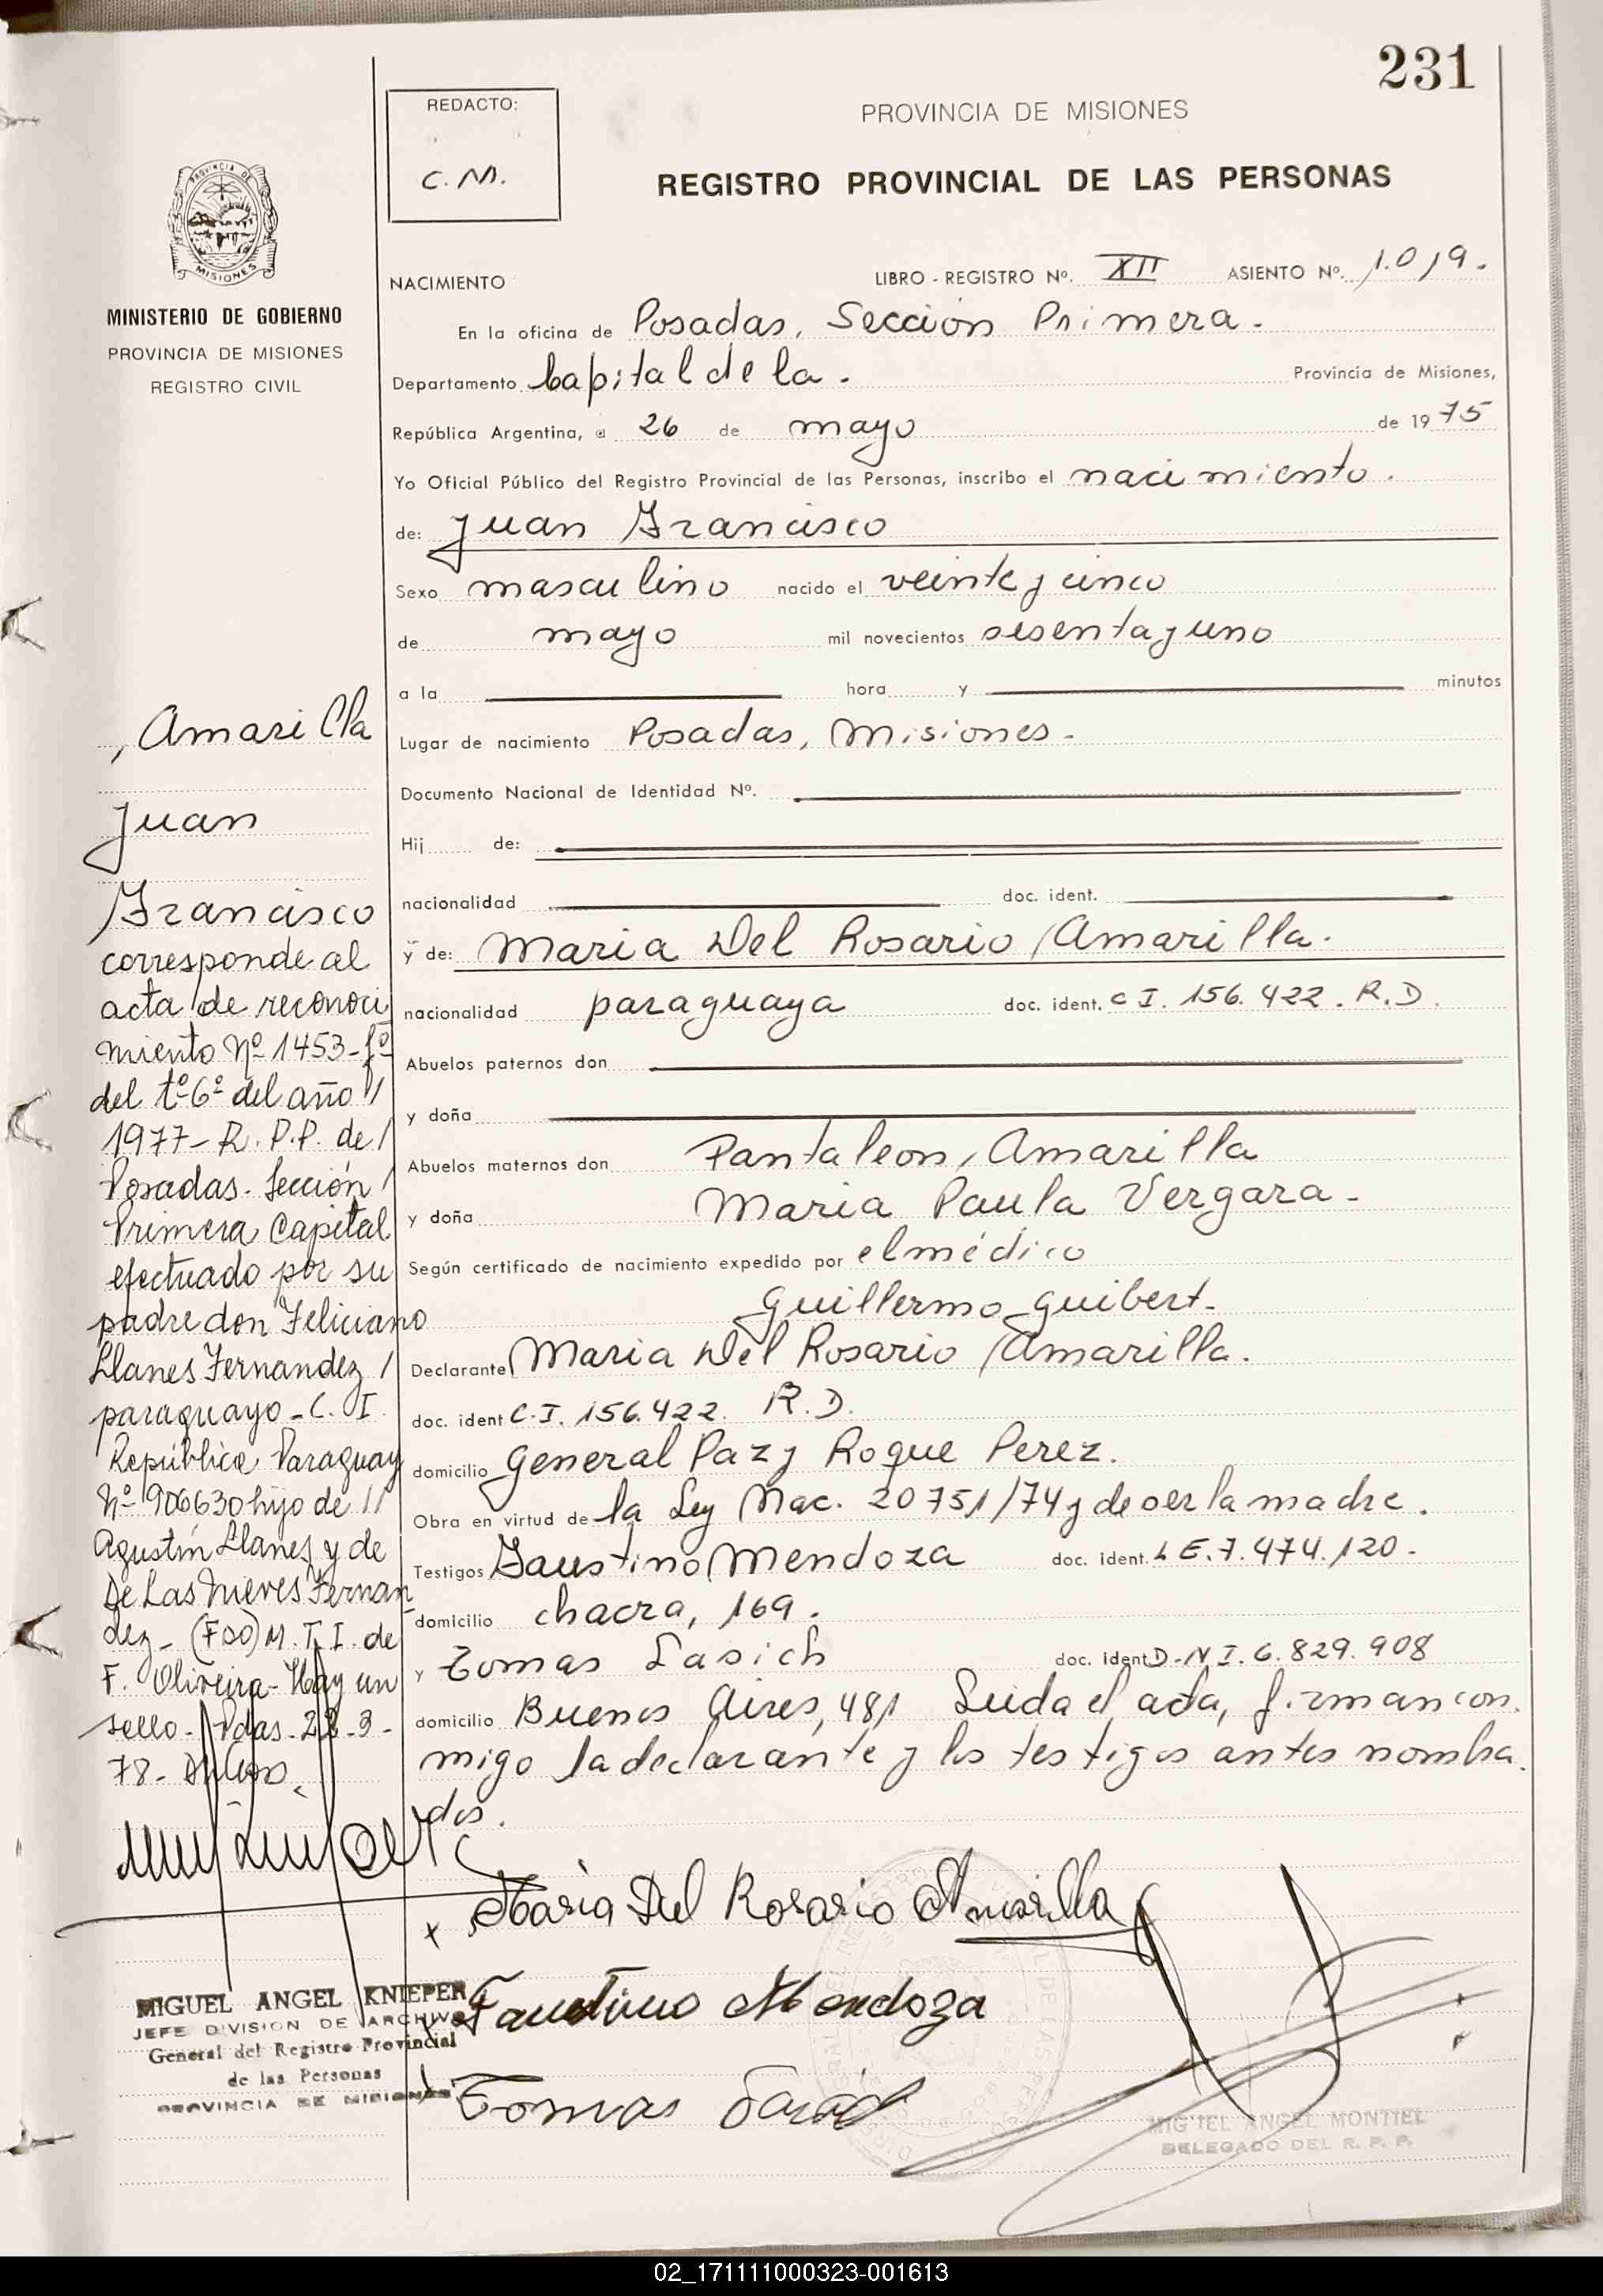 231
REDACTO:
C.M.
PROVINCIA DE MISIONES
REGISTRO PROVINCIAL DE LAS PERSONAS
MISIONES
MINISTERIO DE GOBIERNO
PROVINCIA DE MISIONES
REGISTRO CIVIL
NACIMIENTO LIBRO - REGISTRO Nº. XII ASIENTO Nº. 1.019.
En la oficina de Posadas, Sección Primera.
Departamento Capital de la. Provincia de Misiones,
República Argentina, a 26 de mayo de 1975
Yo Oficial Público del Registro Provincial de las Personas, inscribo el nacimiento.
de: Juan Francisco
Sexo masculino nacido el veinte y cinco
de mayo mil novecientos sesenta y uno
a la hora y minutos
Lugar de nacimiento Posadas, Misiones.
Documento Nacional de Identidad Nº.
Hij de:
nacionalidad doc. ident.
y de: Maria Del Rosario Amarilla.
nacionalidad paraguaya doc. ident. C I. 156.422. R.D.
Abuelos paternos don
y doña
Abuelos maternos don Pantaleon, Amarilla
y doña Maria Paula Vergara -
Según certificado de nacimiento expedido por el médico
Guillermo Guibert.
Declarante Maria Del Rosario Amarilla.
doc. ident C.I. 156.422. R.D.
domicilio General Paz y Roque Perez.
Obra en virtud de la Ley Nac. 20751/74 y de ser la madre.
Testigos Faustino Mendoza doc. ident. L E. 7.474.120.
domicilio chacra, 169.
y Tomas Sasich doc. ident D-N I. 6.829.908
domicilio Buenos Aires, 481 Leida el acta, firman con
migo la declarante y los testigos antes nombra
dos.
Amarilla
Juan
Francisco
corresponde al
acta de reconoci
miento Nº 1453 - fº
del tº 6º del año //
1977 - R.P.P. de /
Posadas. Sección /
Primera Capital
efectuado por su
padre don Feliciano
Llanes Fernandez /
paraguayo - C. I
República Paraguay
Nº 906630 hijo de //
Agustín Llanes y de
De Las Nieves Fernan
dez - (Fdo) M. T. I. de
F. Oliveira - Hay un
sello - Pdas. 22-3-
78-
Maria Del Rosario Amarilla
Faustino Mendoza
Tomas
MIGUEL ANGEL KNIEPER
JEFE DIVISION DE ARCHIVO
General del Registro Provincial
de las Personas
PROVINCIA DE MISIONES
MIGUEL ANGEL MONTIEL
DELEGADO DEL R. P. P.
02_171111000323-001613